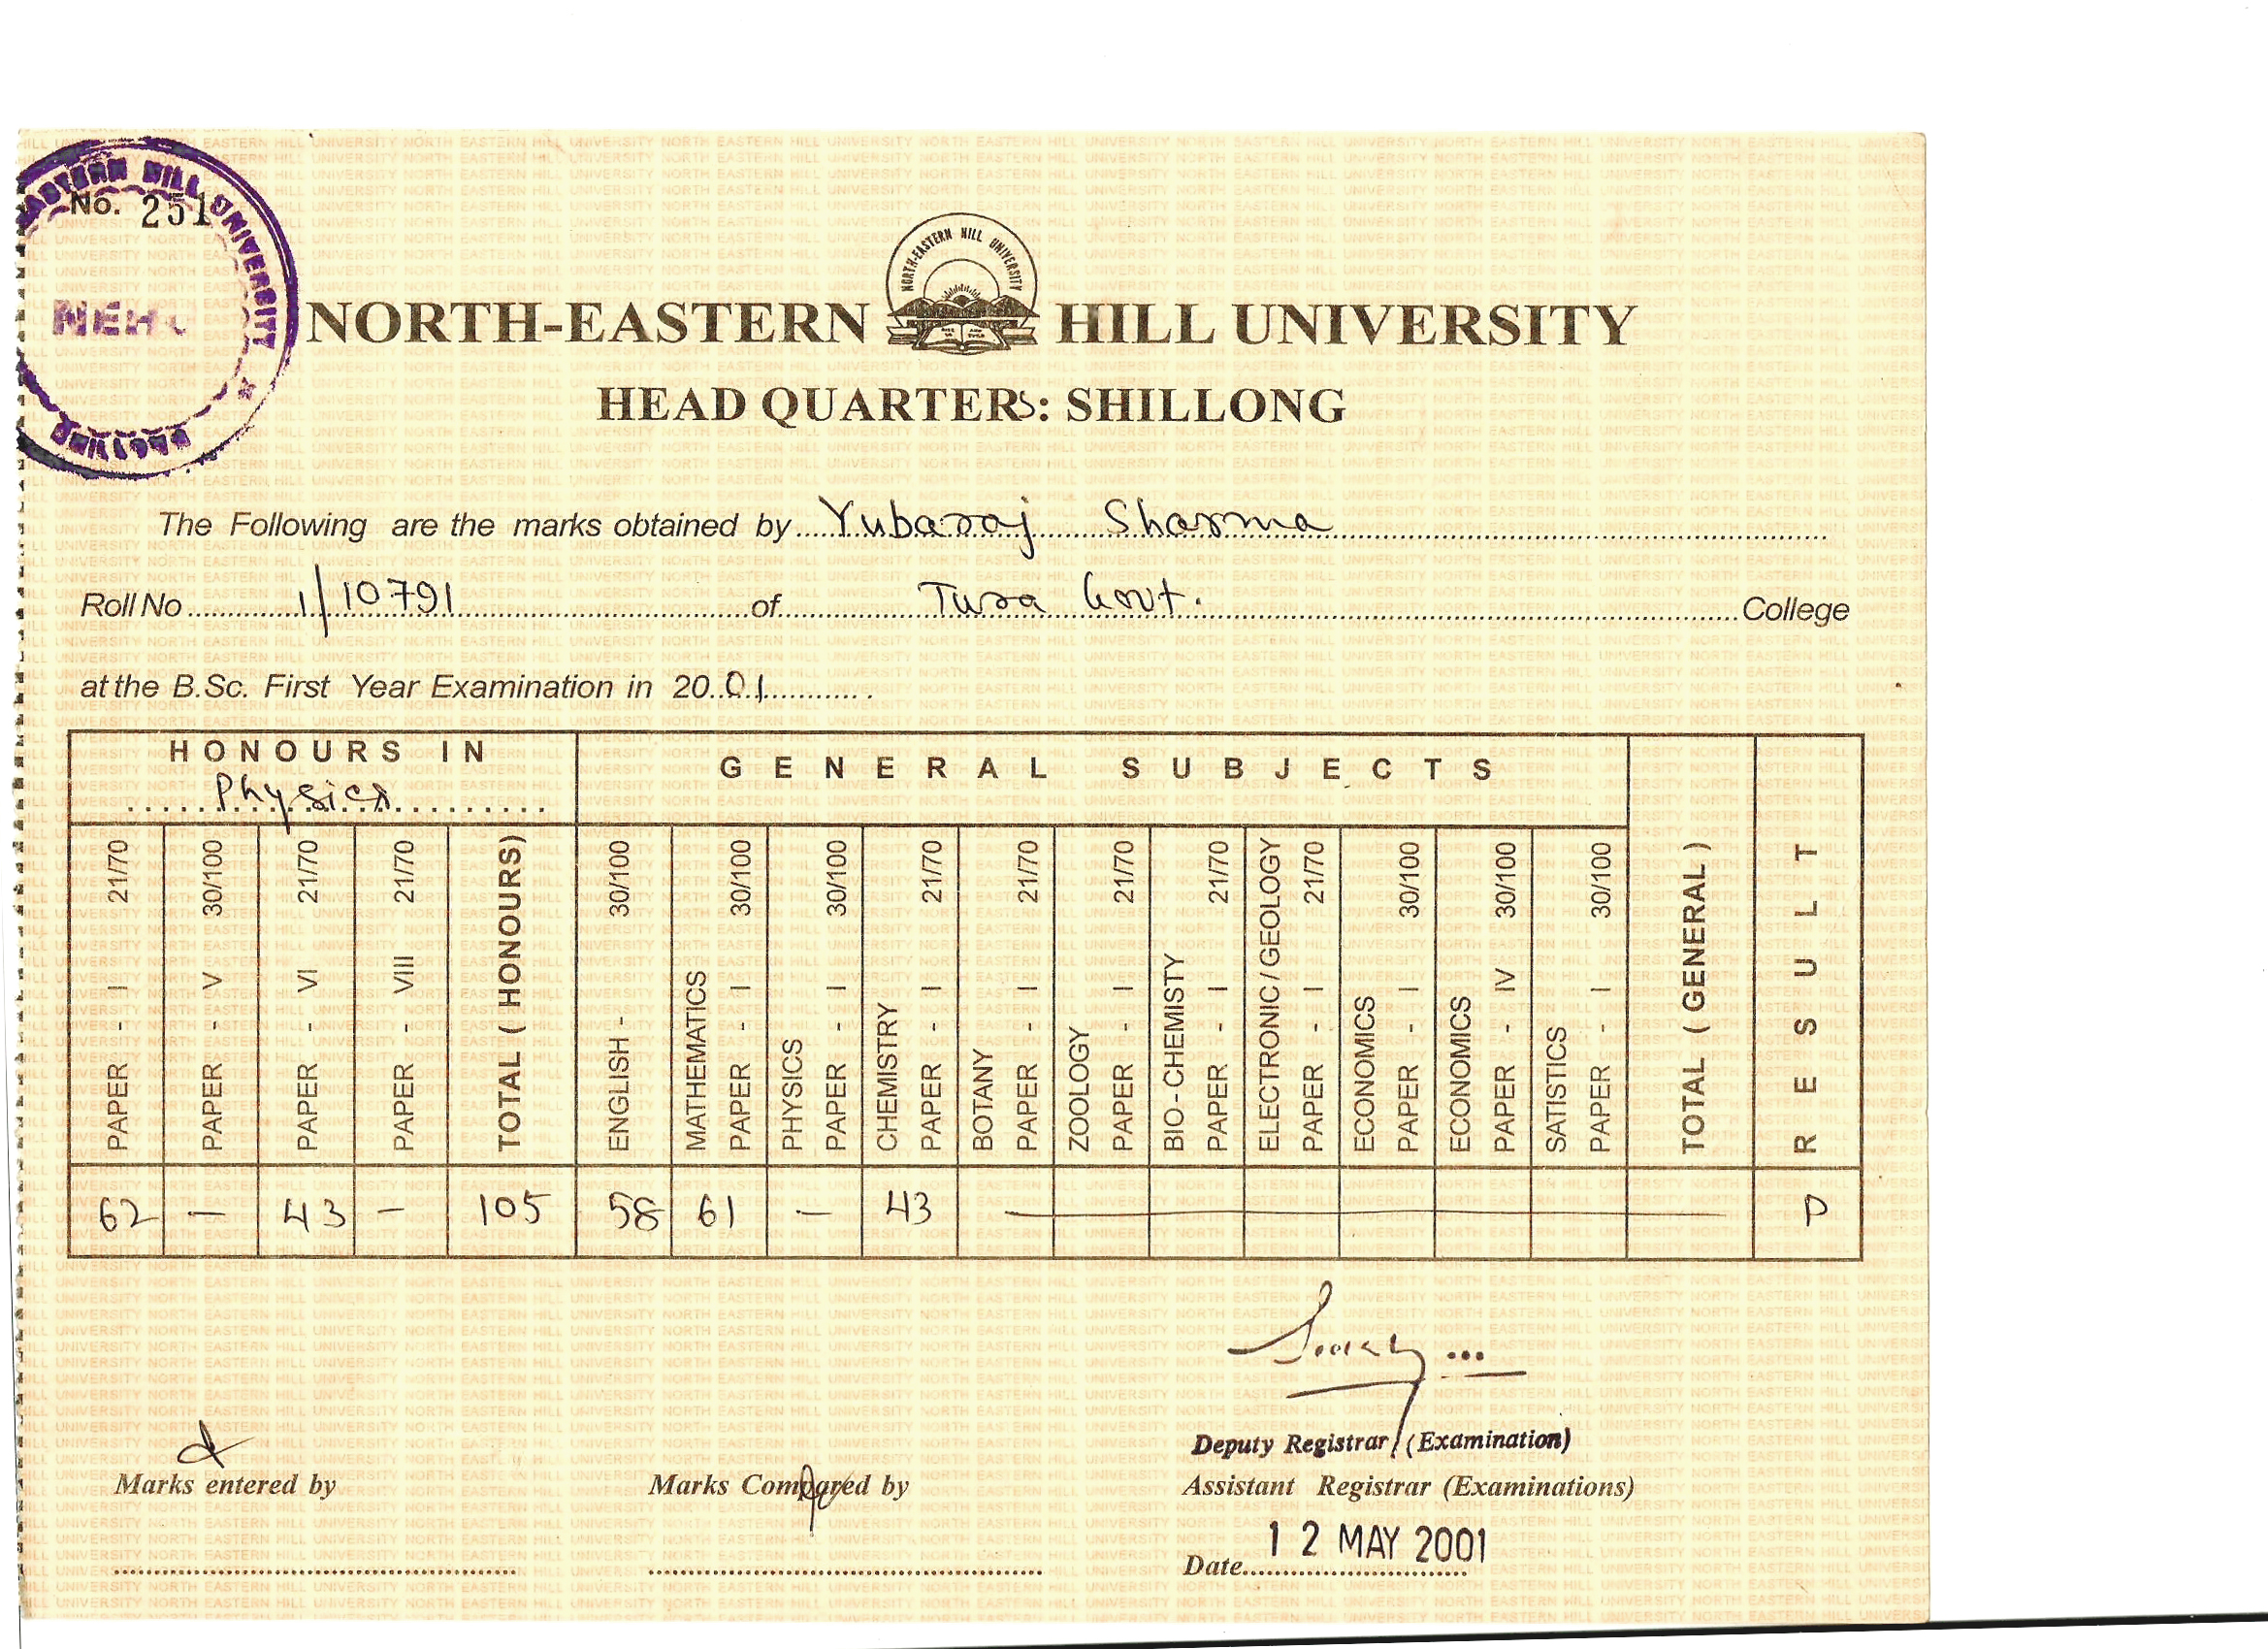 No. 251
EASTERN HILL UNIVERSITY
NEHU
NORTH-EASTERN HILL UNIVERSITY
NORTH-EASTERN HILL UNIVERSITY
HEAD QUARTERS: SHILLONG
The Following are the marks obtained by Yubaraj Sharma
Roll No 1/10791 of Tura Govt. College
at the B.Sc. First Year Examination in 2001
HONOURS IN Physics
GENERAL SUBJECTS
PAPER - I 21/70
PAPER - V 30/100
PAPER - VI 21/70
PAPER - VIII 21/70
TOTAL (HONOURS)
ENGLISH - 30/100
MATHEMATICS PAPER - I 30/100
PHYSICS PAPER - I 30/100
CHEMISTRY PAPER - I 21/70
BOTANY PAPER - I 21/70
ZOOLOGY PAPER - I 21/70
BIO - CHEMISTY PAPER - I 21/70
ELECTRONIC / GEOLOGY PAPER - I 21/70
ECONOMICS PAPER - I 30/100
ECONOMICS PAPER - IV 30/100
SATISTICS PAPER - I 30/100
TOTAL (GENERAL)
RESULT
62 — 43 — 105 58 61 — 43 — P
Deputy Registrar (Examination)
Marks entered by
Marks Compared by
Assistant Registrar (Examinations)
Date 12 MAY 2001